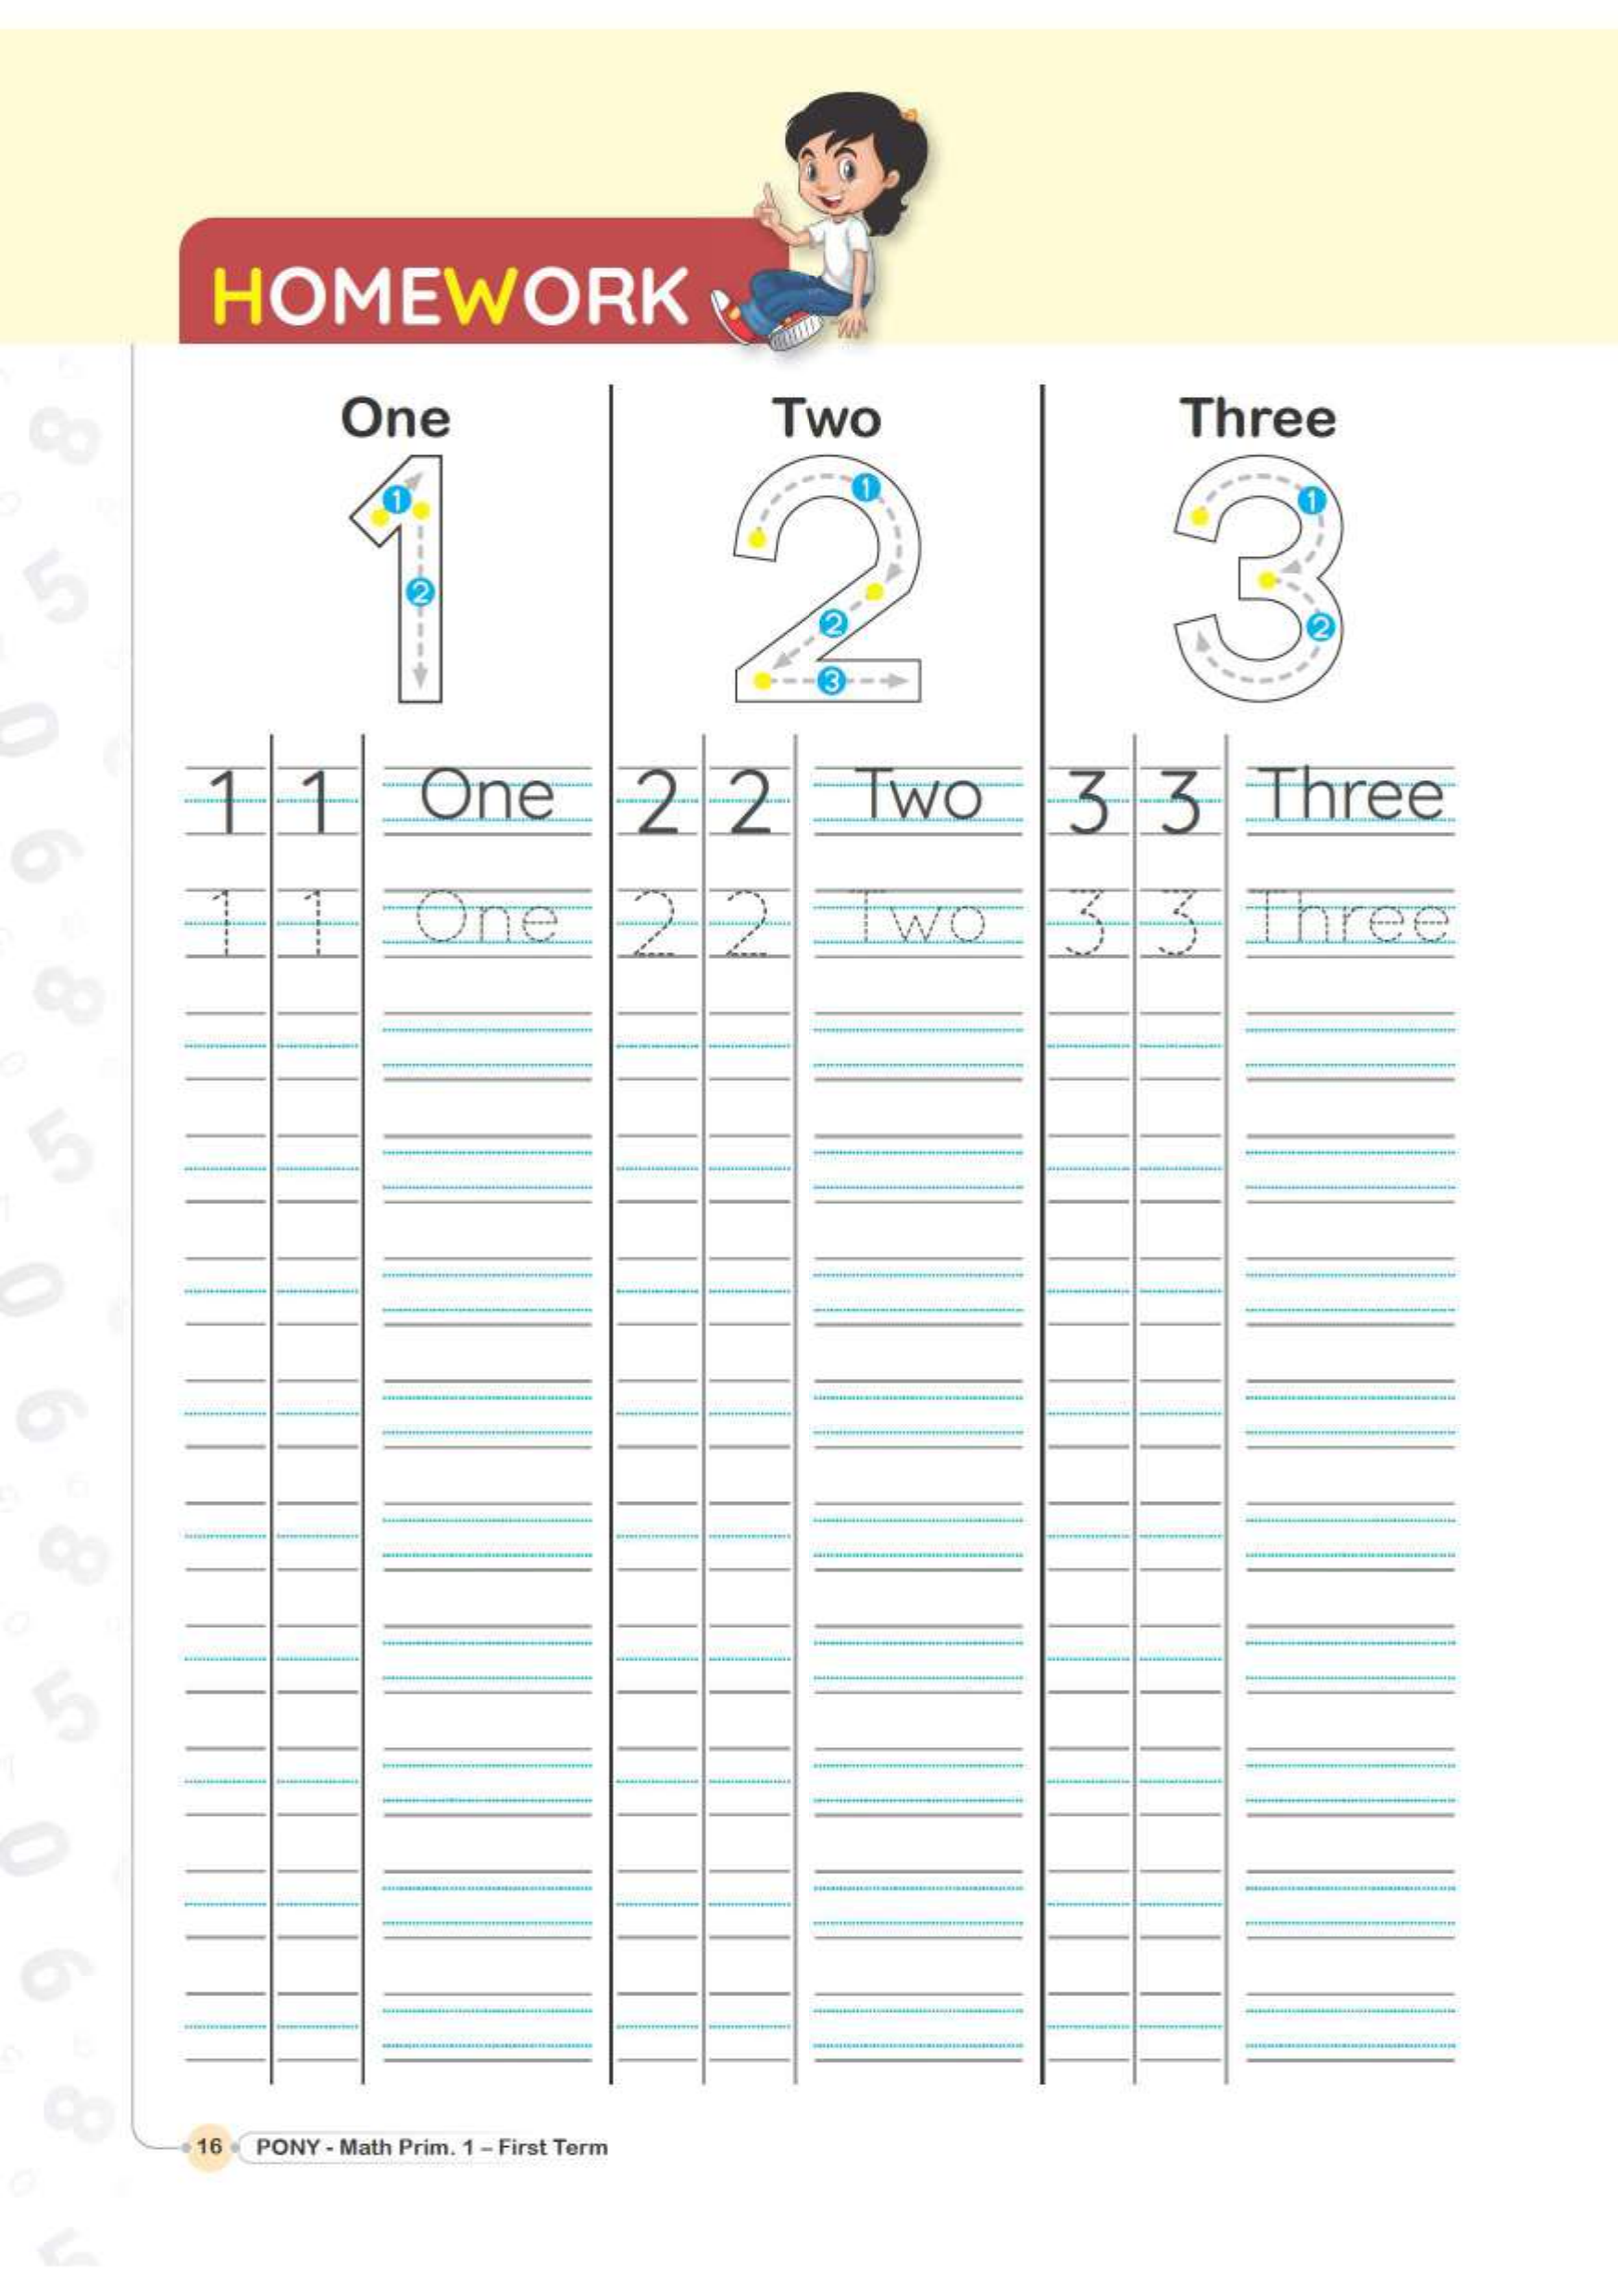 HOMEWORK
One Two Three
1 2 1 2 3 1 2
1 1 One 2 2 Two 3 3 Three
1 1 One 2 2 Two 3 3 Three
16 PONY - Math Prim. 1 – First Term